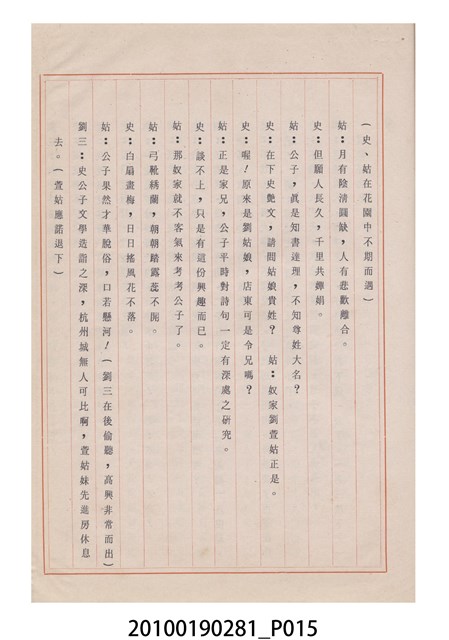 (史、姑在花園中不期而遇)
姑：月有陰清圓缺，人有悲歡離合。
史：但願人長久，千里共嬋娟。
姑：公子，眞是知書達理，不知尊姓大名？
史：在下史艷文，請問姑娘貴姓？ 姑：奴家劉萱姑正是。
史：喔！原來是劉姑娘，店東可是令兄嗎？
姑：正是家兄，公子平時對詩句一定有深處之研究。
史：談不上，只是有這份興趣而已。
姑：那奴家就不客氣來考考公子了。
姑：弓靴綉蘭，朝朝踏露蕊不開。
史：白扇畫梅，日日搖風花不落。
姑：公子果然才華脫俗，口若懸河！(劉三在後偷聽，高興非常而出)
劉三：史公子文學造詣之深，杭州城無人可比啊，萱姑妹先進房休息
去。(萱姑應諾退下)
20100190281_P015